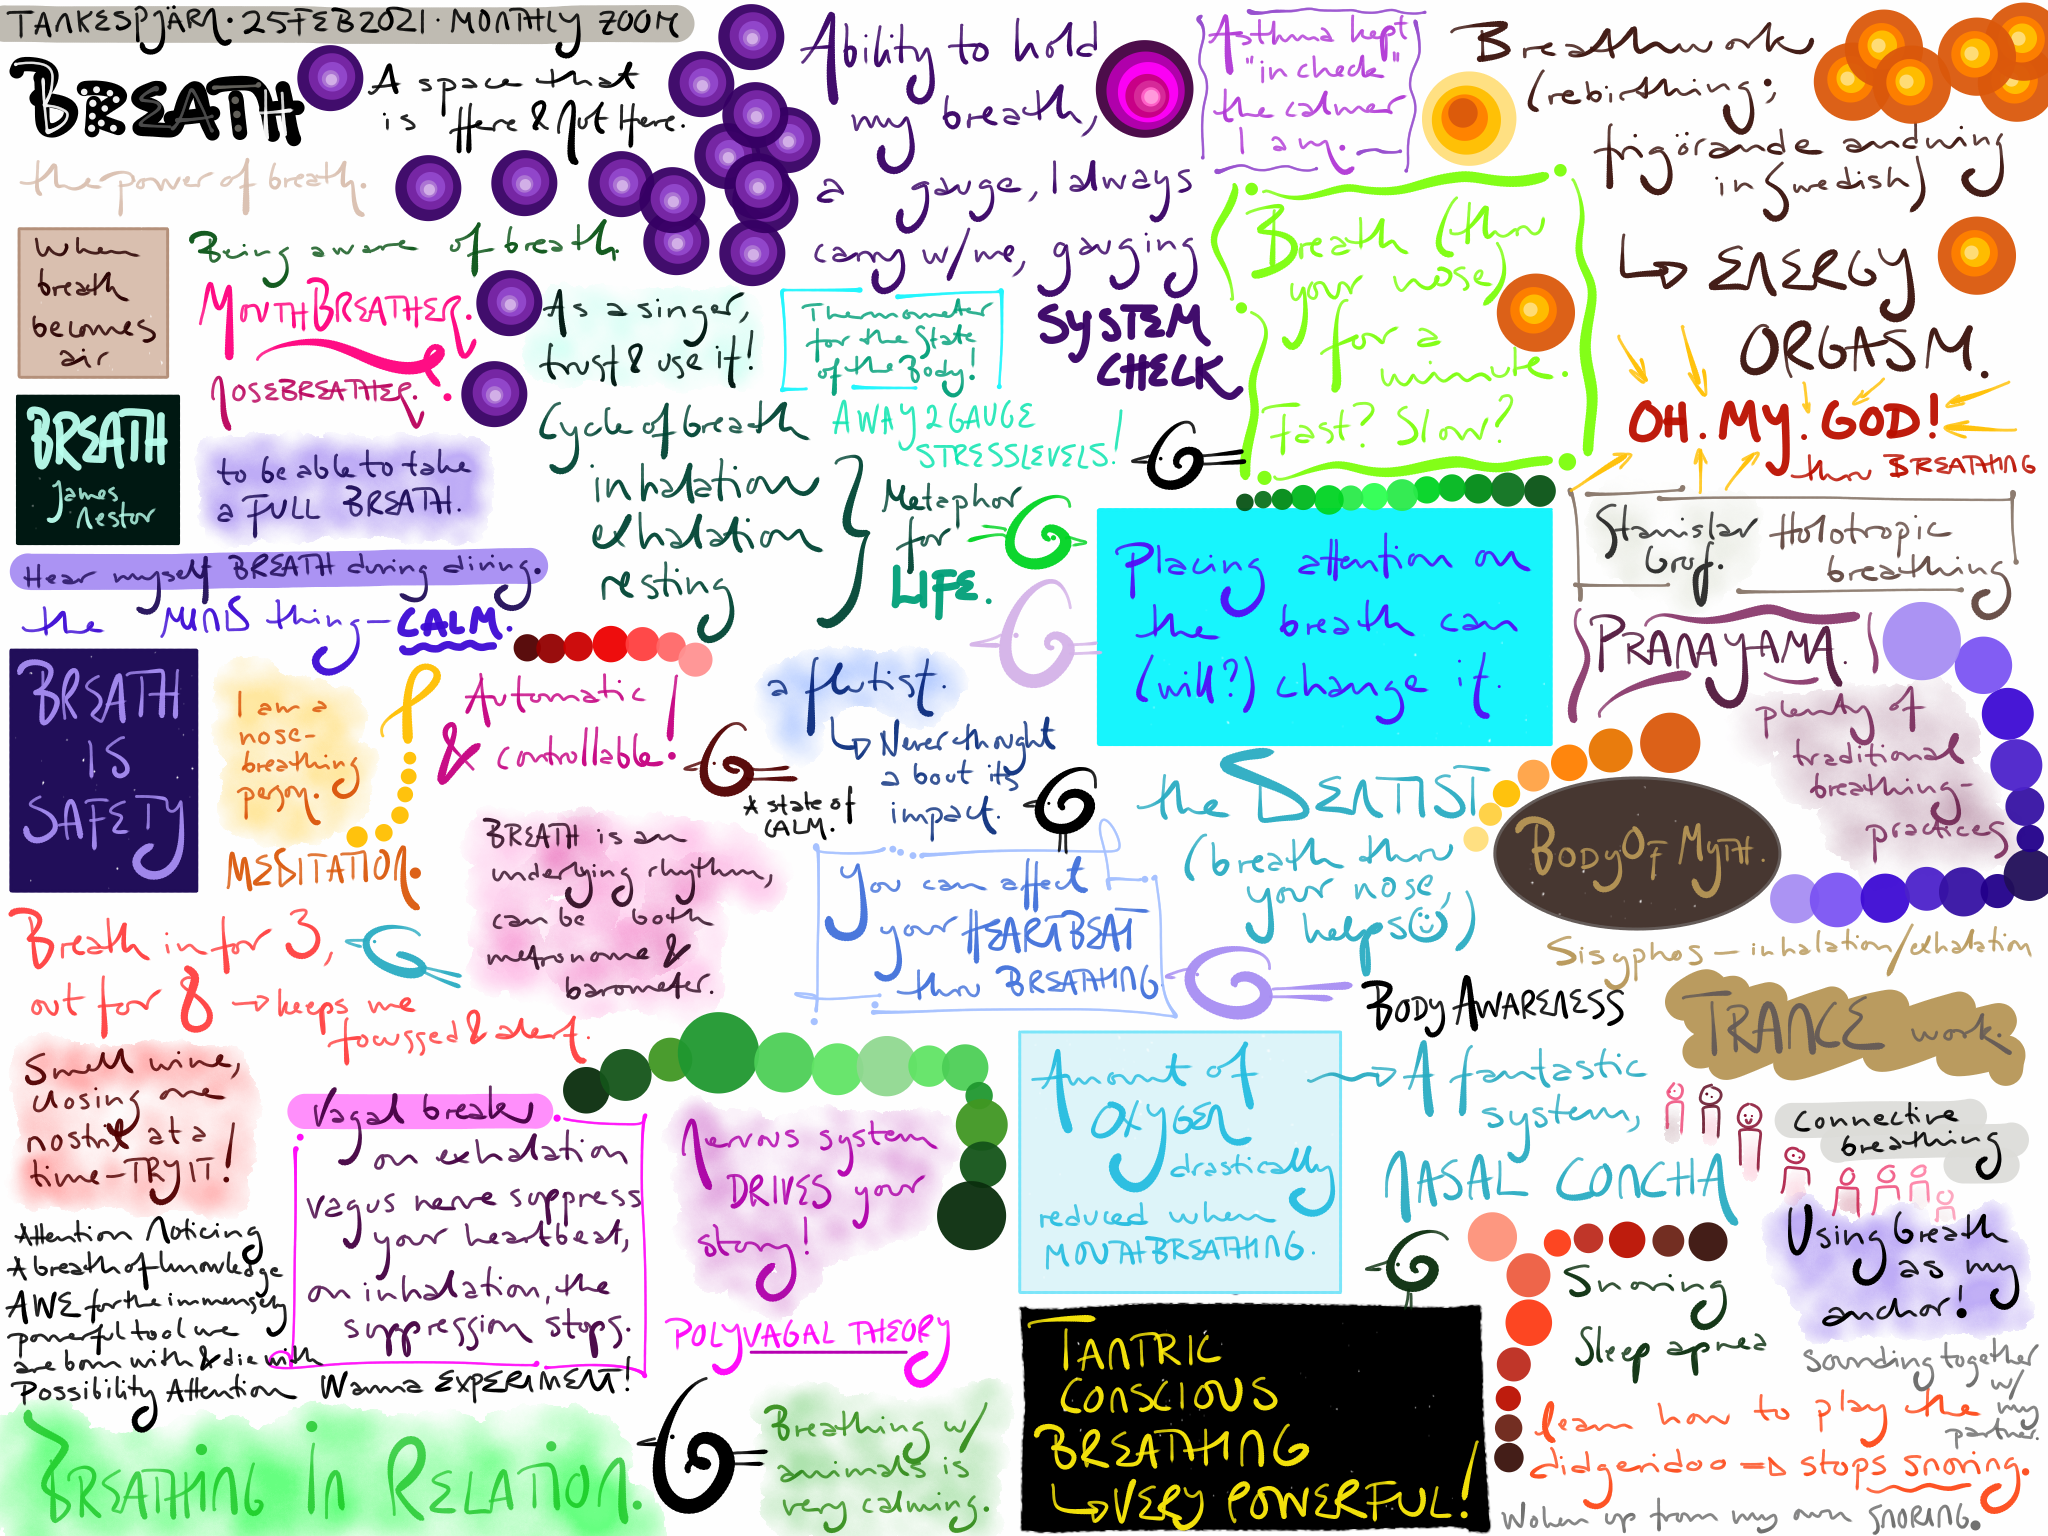 TANKESPJÄRN · 25 FEB 2021 · MONTHLY ZOOM
BREATH
A space that
is Here & Not Here.
the power of breath.
When
breath
becomes
air
Being aware of breath.
MOUTHBREATHER.
NOSEBREATHER.
BREATH
James
Nestor
to be able to take
a FULL BREATH.
Hear myself BREATH during diving.
the MIND thing – CALM.
BREATH
IS
SAFETY
I am a
nose-
breathing
person.
MEDITATION.
Automatic
& controllable!
As a singer,
trust & use it!
Cycle of breath
inhalation
exhalation
resting
Metaphor
for
LIFE.
Thermometer
for the State
of the Body!
A WAY 2 GAUGE
STRESSLEVELS!
Ability to hold
my breath,
a gauge, I always
carry w/me, gauging
SYSTEM
CHECK
Asthma kept
"in check"
the calmer
I am.
Breath (thru
your nose)
for a
minute.
Fast? Slow?
Breathwork
(rebirthing;
frigörande andning
in Swedish)
↳ ENERGY
ORGASM.
OH. MY. GOD!
thru BREATHING
Stanislav
Grof.
Holotropic
breathing
PRANAYAMA.
plenty of
traditional
breathing-
practices
Placing attention on
the breath can
(will?) change it.
a flutist.
↳ Never thought
about its
impact.
A state of
CALM.
BREATH is an
underlying rhythm,
can be both
metronome &
barometer.
You can affect
your HEARTBEAT
thru BREATHING
the DENTIST
(breath thru
your nose,
helps ☺)
BODY OF MYTH.
Sisyphos – inhalation/exhalation
TRANCE work.
Breath in for 3,
out for 8 → keeps me
focussed & alert.
Smell wine,
closing one
nostril at a
time – TRY IT!
Vagal break.
on exhalation
vagus nerve suppress
your heartbeat,
on inhalation, the
suppression stops.
Wanna EXPERIMENT!
Nervous system
DRIVES your
story!
POLYVAGAL THEORY
BODY AWARENESS
Amount of
OXYGEN
drastically
reduced when
MOUTHBREATHING.
→ A fantastic
system,
NASAL CONCHA
Connective
breathing
Using breath
as my
anchor!
Attention Noticing
A breath of knowledge
AWE for the immensely
powerful tool we
are born with & die with
Possibility Attention
BREATHING IN RELATION.
Breathing w/
animals is
very calming.
TANTRIC
CONSCIOUS
BREATHING
↳ VERY POWERFUL!
Snoring
Sleep apnea
sounding together
w/
my
partner.
Learn how to play the
didgeridoo => stops snoring.
Woken up from my own SNORING.